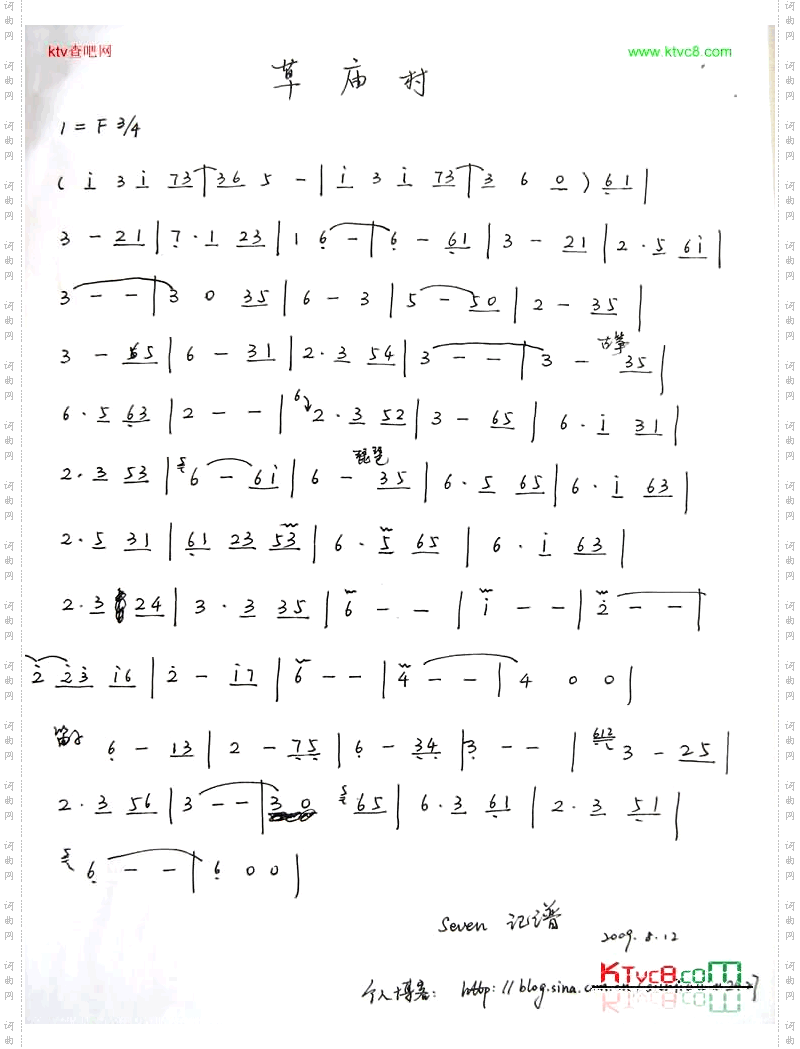 ktv查吧网 www.ktvc8.com
草庙村
1 = F 3/4
( i 3 i 73 | 36 5 - | i 3 i 73 | 3 6 0 ) 61 |
3 - 21 | 7 · 1 23 | 1 6 - | 6 - 61 | 3 - 21 | 2 · 5 6i |
3 - - | 3 0 35 | 6 - 3 | 5 - 50 | 2 - 35 |
3 - 65 | 6 - 31 | 2 · 3 54 | 3 - - | 3 - 古筝 35 |
6 · 5 63 | 2 - - | 6 2 · 3 52 | 3 - 65 | 6 · i 31 |
2 · 3 53 | 5 6 - 6i | 6 - 琵琶 35 | 6 · 5 65 | 6 · i 63 |
2 · 5 31 | 61 23 53 | 6 · 5 65 | 6 · i 63 |
2 · 3 24 | 3 · 3 35 | 6 - - | i - - | 2 - - |
2 23 i6 | 2 - i7 | 6 - - | 4 - - | 4 0 0 |
笛子 6 - 13 | 2 - 75 | 6 - 34 | 3 - - | 612 3 - 25 |
2 · 3 56 | 3 - - | 3 0 5 65 | 6 · 3 61 | 2 · 3 51 |
5 6 - - | 6 0 0 |
Seven 记谱
2009.8.12
KTvc8.com
个人博客: http://blog.sina.
词曲网